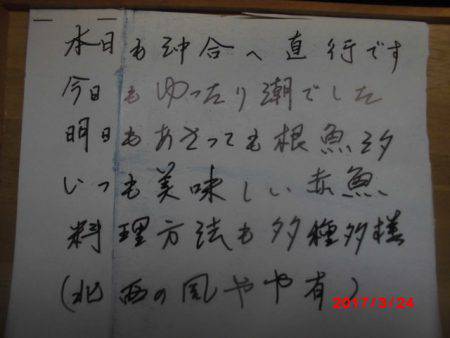 本日も沖合へ直行です
今日もゆったり潮でした
明日もあさっても根魚
いつも美味しい赤魚
料理方法も多種多様
(北西の風やや有)
2017/3/24